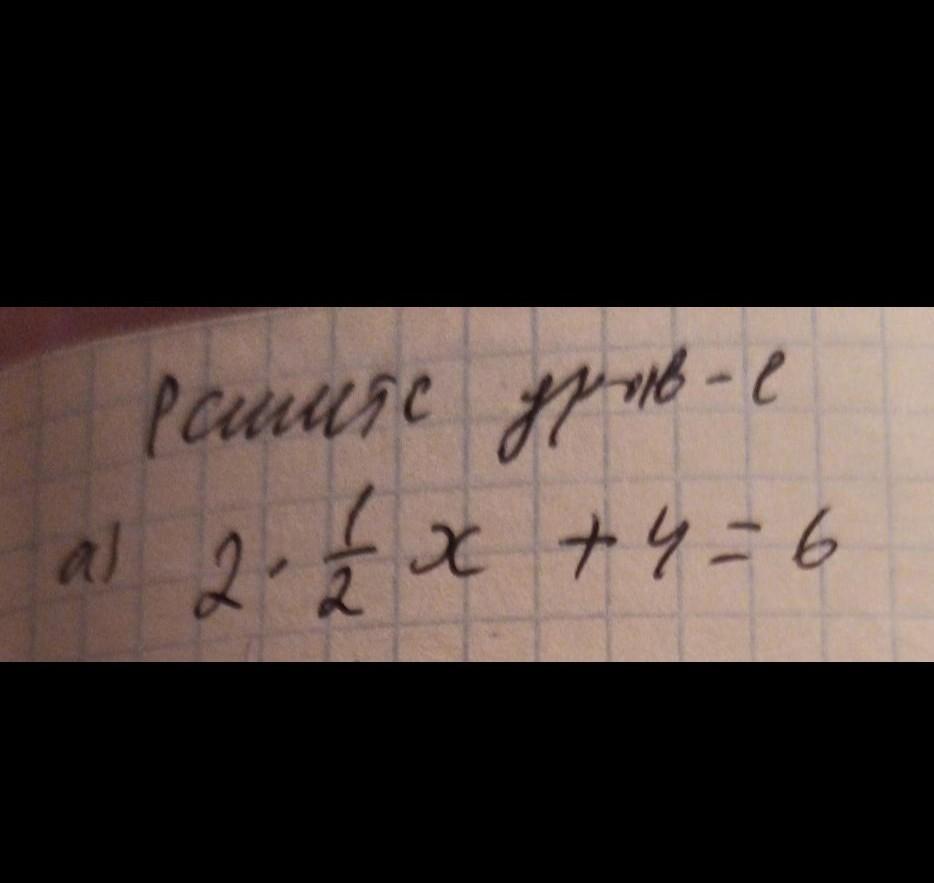 Решите урав-е
а) 2 · 1/2 x + 4 = 6